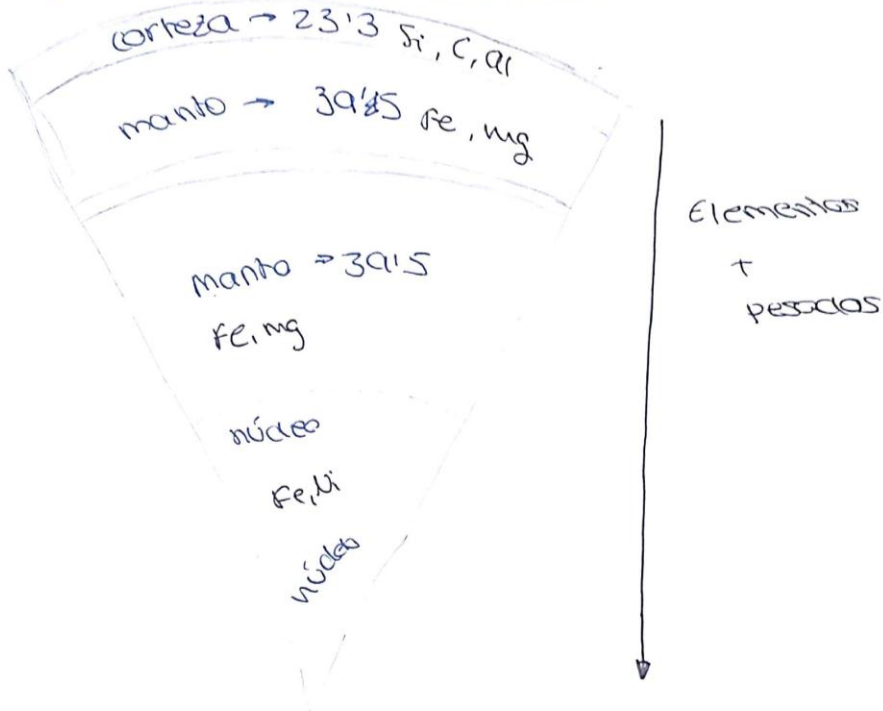 corteza → 23'3 Si, C, al
manto → 39'5 Fe, mg
manto → 39'5
Fe, mg
núcleo
Fe, Ni
núcleo
Elementos
+
pesados